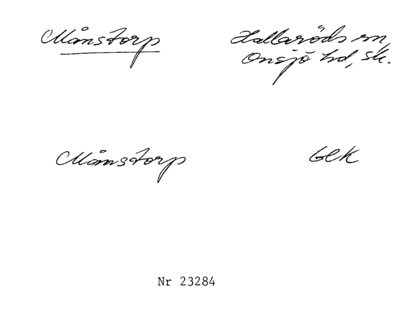 Månstorp
Hallaröds sn,
Onsjö hd, Sk.
Månstorp
GEK
Nr 23284